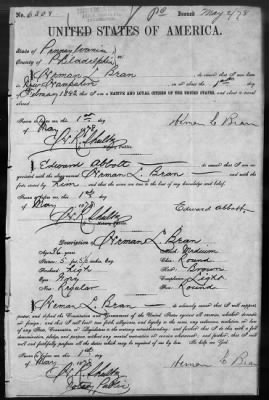 Issued May 2/78
UNITED STATES OF AMERICA.
State of Pennsylvania
County of Philadelphia
I Herman L Bran do swear that I was born
in
on
February 1842 that I am a NATIVE AND LOYAL CITIZEN OF THE UNITED STATES, and about to travel
abroad.
Sworn to before me, this 1st day
of May 1878
Notary Public
I Edward Abbott do swear that I am ac-
quainted with the above-named Herman L. Bran and with the
facts stated by him and that the same are true to the best of my knowledge and belief.
Sworn to before me, this 1st day
of May 1878
Edward Abbott
Notary Public
Description of Herman L Bran
Age: 36 years
Mouth: Medium
Stature: 5 feet
Chin: Round
Forehead: High
Hair: Brown
Eyes: Gray
Complexion: Light
Nose: Regular
Face: Round
I Herman L. Bran do solemnly swear that I will support,
protect, and defend the Constitution and Government of the United States against all enemies, whether domestic
or foreign; and that I will bear true faith, allegiance, and loyalty to the same, any ordinance, resolution, or law
of any State, Convention, or Legislature to the contrary notwithstanding; and further, that I do this with a full
determination, pledge, and purpose, without any mental reservation or evasion whatsoever; and further, that I
will well and faithfully perform all the duties which may be required of me by law. So help me God.
Sworn to before me, this 1st day
of May 1878
Notary Public